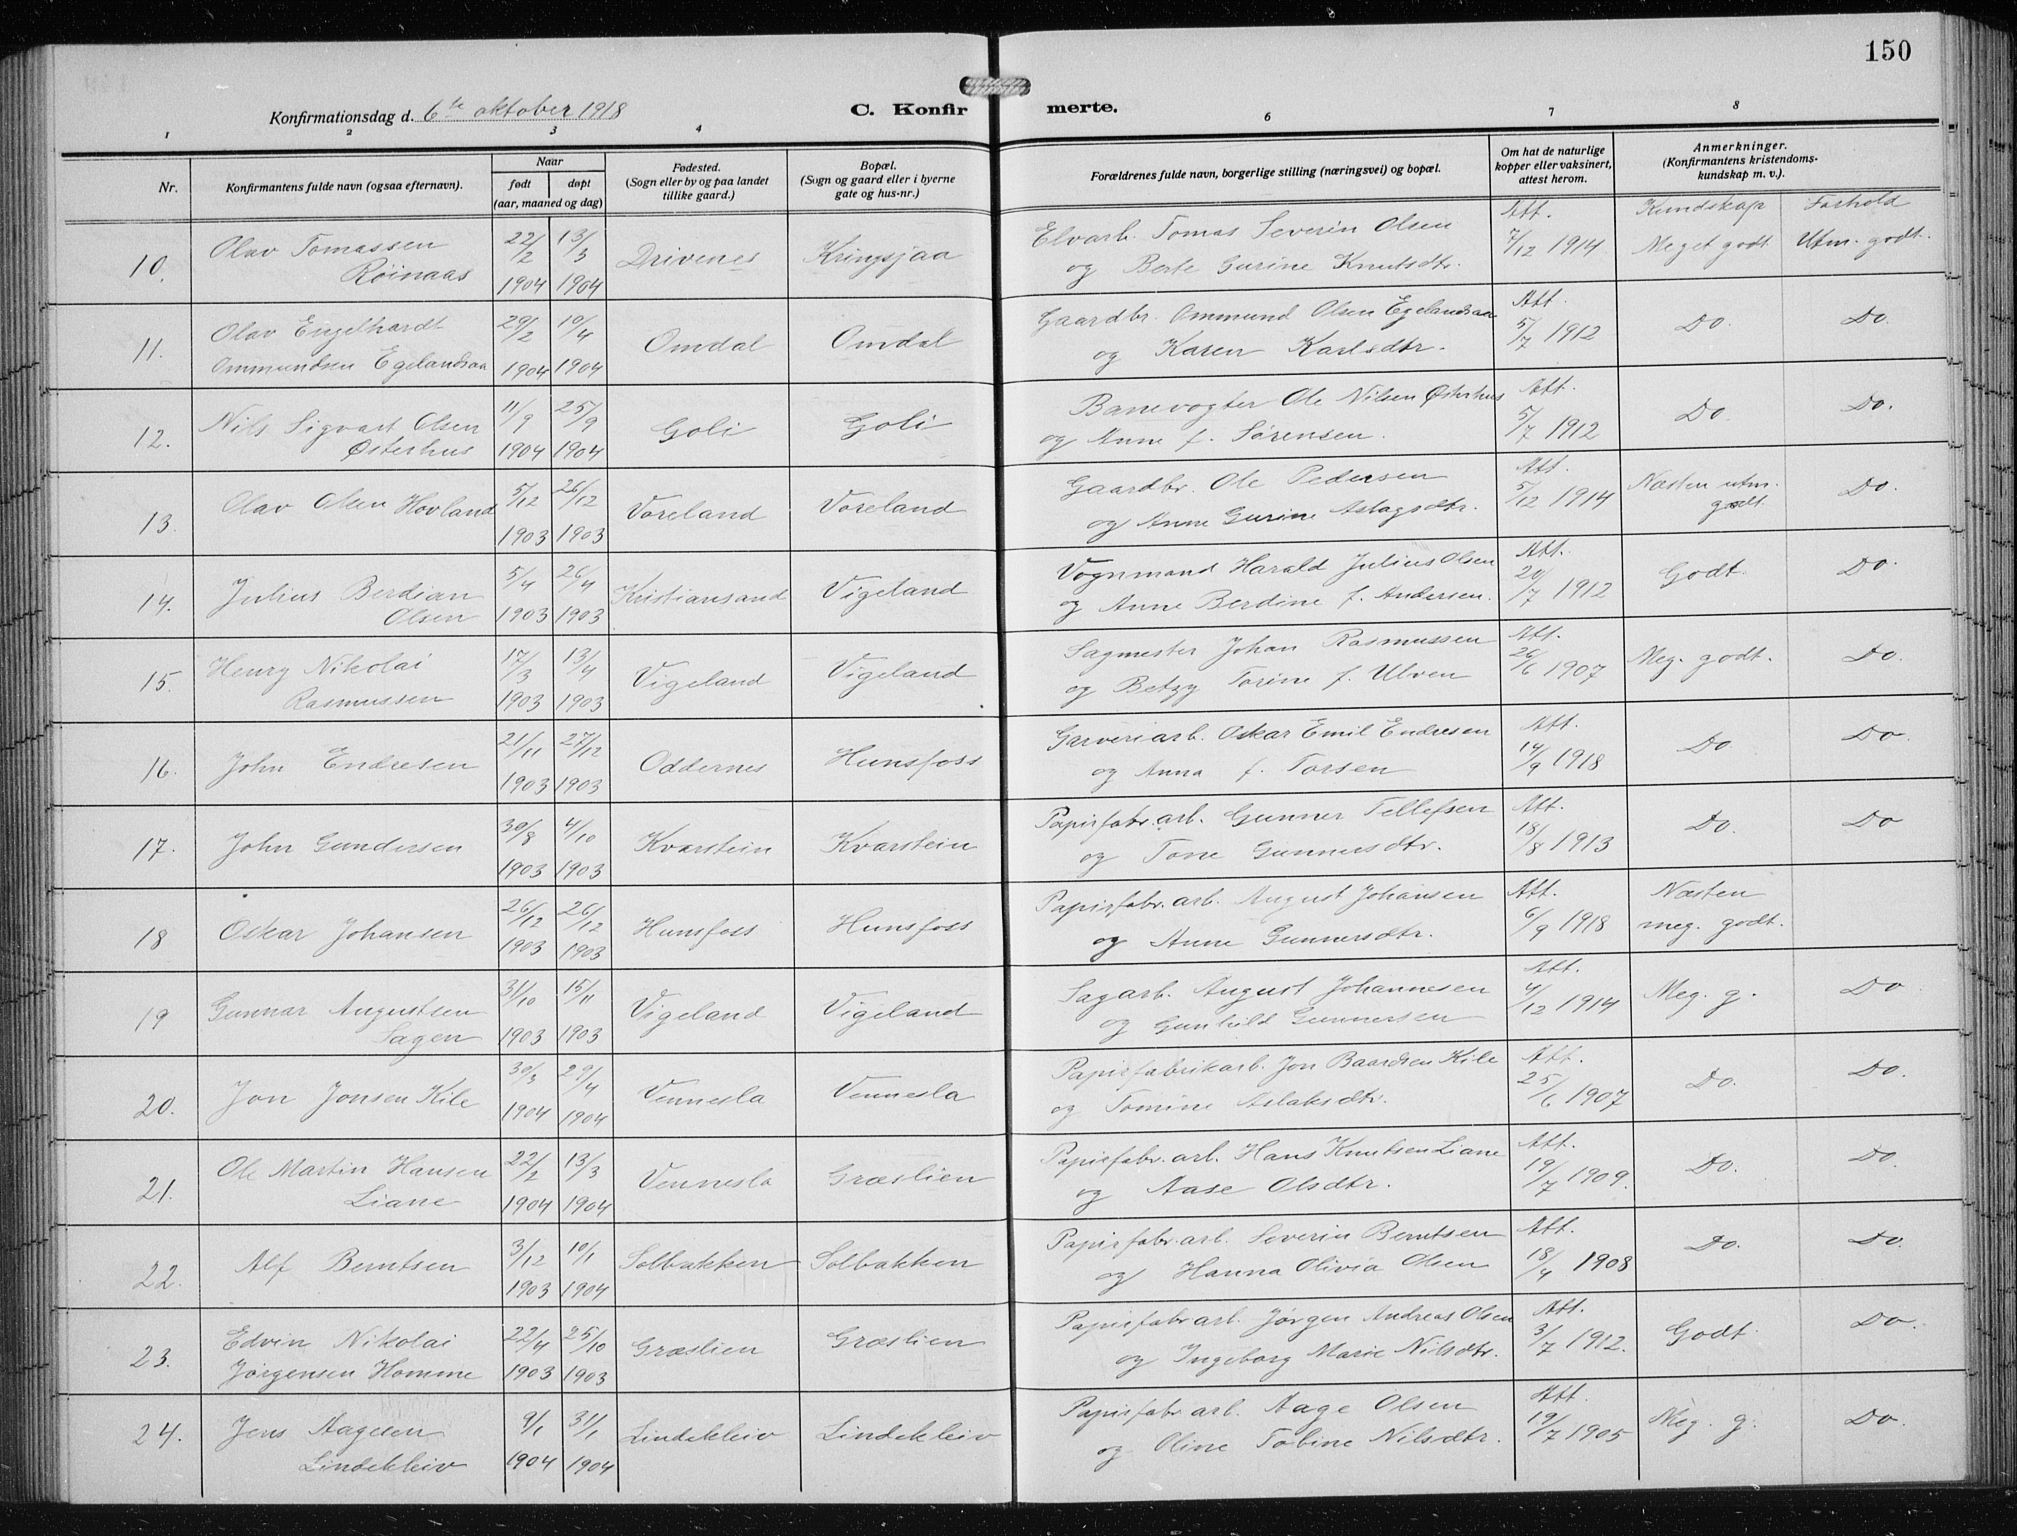 150
Konfirmationsdag d. 6te oktober 1918
C. Konfirmerte.
1 2 3 4 5 6 7 8
Nr.
Konfirmantens fulde navn (ogsaa efternavn).
Naar
født døpt
(aar, maaned og dag)
Fødested.
(Sogn eller by og paa landet
tillike gaard.)
Bopæl.
(Sogn og gaard eller i byerne
gate og hus-nr.)
Forældrenes fulde navn, borgerlige stilling (næringsvei) og bopæl.
Om hat de naturlige
kopper eller vaksinert,
attest herom.
Anmerkninger.
(Konfirmantens kristendoms-
kundskap m. v.).
Kundskap Forhold
10. Olav Tomassen Røinaas 22/2 1904 13/3 1904 Drivenes Kringsjaa Elvarb. Tomas Severin Olsen og Berte Gurine Knutsdtr. Att. 7/12 1914 Meget godt Utm. godt.
11. Olav Engelhardt Ommundsen Egelandsaa 29/2 1904 10/4 1904 Omdal Omdal Gaardbr. Ommund Olsen Egelandsaa og Karen Karlsdtr. Att. 5/7 1912 Do. Do.
12. Nils Sigvart Olsen Østerhus 11/9 1904 25/9 1904 Goli Goli Banevogter Ole Nilsen Østerhus og Anne f. Sørensen. Att. 5/7 1912 Do. Do.
13. Olav Olsen Hovland 5/12 1903 26/12 1903 Voreland Voreland Gaardbr. Ole Pedersen og Anne Gurine Aslagsdtr. Att. 5/12 1914 Næsten utm. godt. Do.
14. Julius Berdian Olsen 5/4 1903 26/4 1903 Kristiansand Vigeland Vognmand Harald Julius Olsen og Anne Berdine f. Andersen. Att. 20/7 1912 Godt. Do.
15. Henry Nikolai Rasmussen 17/3 1903 13/4 1903 Vigeland Vigeland Sagmester Johan Rasmussen og Betzy Torine f. Ulven Att. 26/6 1907 Meg. godt. Do.
16. John Endresen 21/11 1903 27/12 1903 Oddernes Hunsfoss Garveriarb. Oskar Emil Endresen og Anna f. Torsen Att. 14/9 1918 Do. Do.
17. John Gundersen 30/8 1903 4/10 1903 Kvarstein Kvarstein Papirfabr.arb. Gunner Tellefsen og Tone Gunnersdtr. Att. 18/8 1913 Do. Do
18 Oskar Johansen 26/12 1903 26/12 1903 Hunsfoss Hunsfoss Papirfabr.arb. August Johansen og Anne Gunnersdtr. Att. 6/9 1918 Næsten meg. godt.
19 Gunnar Augustsen Sagen 31/10 1903 15/11 1903 Vigeland Vigeland Sagarb. August Johannesen og Gunhild Gunnersen Att. 4/12 1914 Meg. g. Do
20. Jon Jonsen Kile 30/3 1904 29/4 1904 Vennesla Vennesla Papirfabrikarb. Jon Baardsen Kile og Tomine Aslaksdtr. Att. 25/6 1907 Do. Do.
21. Ole Martin Hansen Liane 22/2 1904 13/3 1904 Vennesla Græslien Papirfabr.arb. Hans Knutsen Liane og Aase Olsdtr. Att. 19/7 1909. Do. Do.
22. Alf Berntsen 3/12 1903 10/1 1904 Solbakken Solbakken Papirfabr.arb. Severin Berntsen og Hanna Olivia Olsen Att. 18/4 1908 Do. Do.
23. Edvin Nikolai Jørgensen Homme 22/4 1903 25/10 1903 Græslien Græslien Papirfabrarb. Jørgen Andreas Olsen og Ingeborg Marie Nilsdtr. Att. 3/7 1912. Godt. Do.
24. Jens Aagesen Lindekleiv 9/1 1904 31/1 1904 Lindekleiv Lindekleiv Papirfabr arb. Aage Olsen og Oline Tobine Nilsdtr. Att. 19/7 1905 Meg. g. Do.